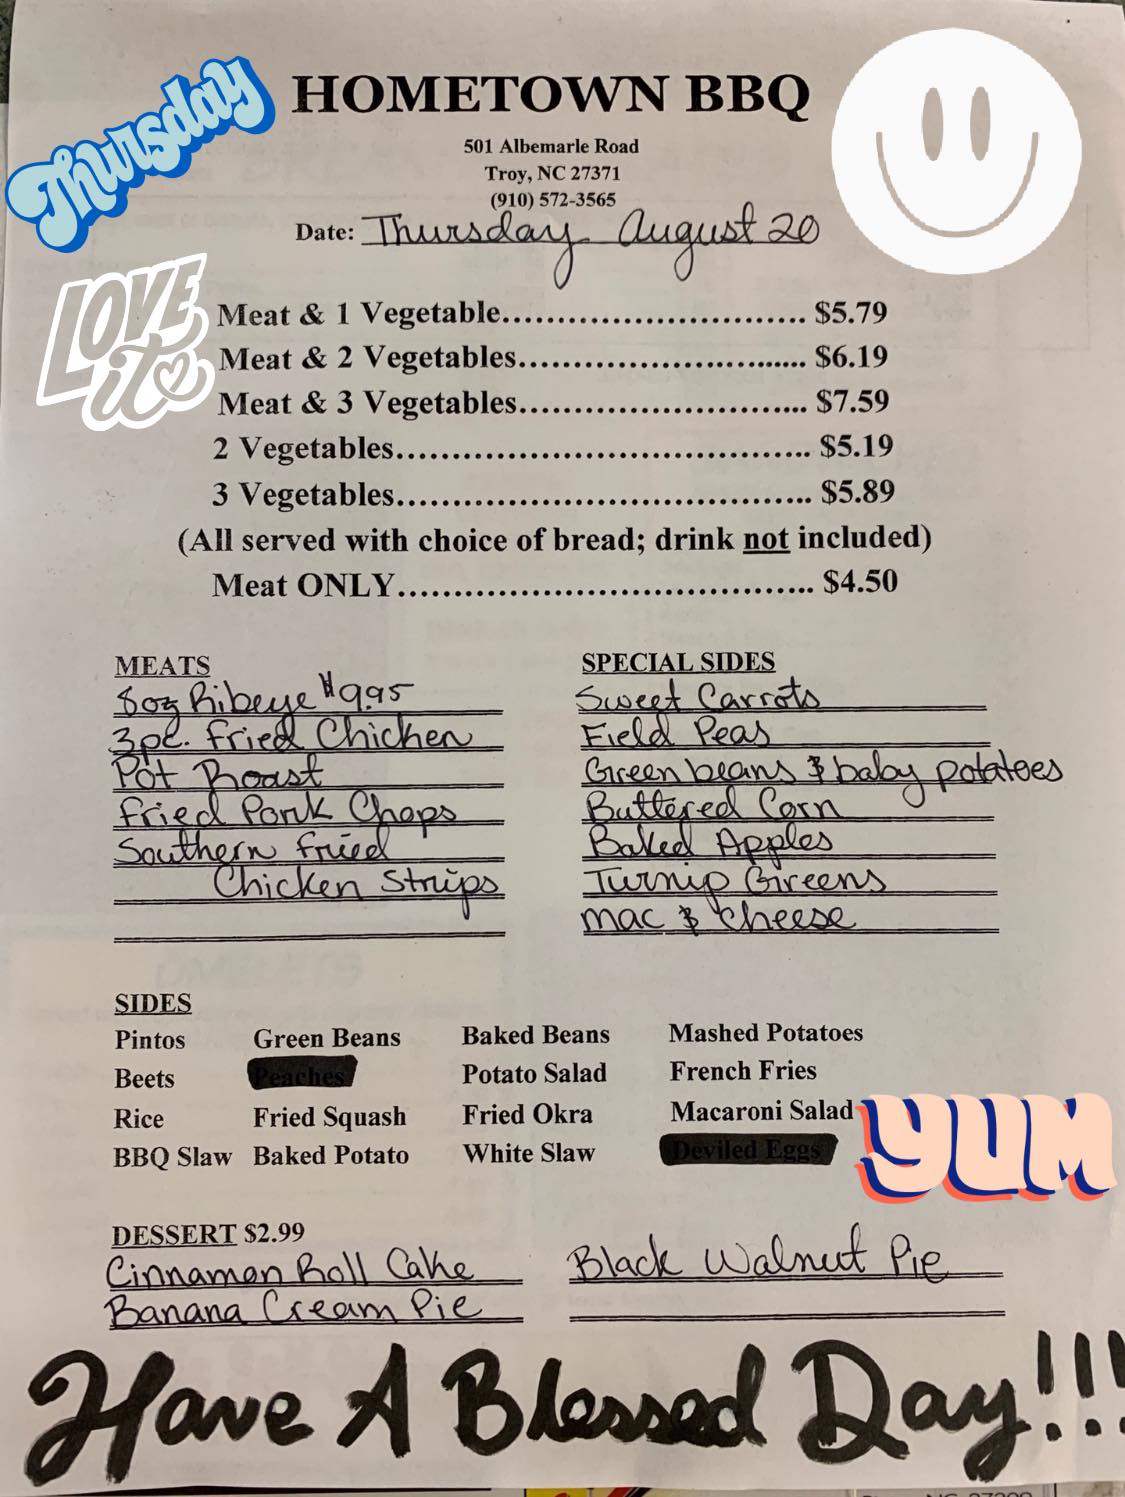 Thursday
HOMETOWN BBQ
501 Albemarle Road
Troy, NC 27371
(910) 572-3565
Date: Thursday August 20
LOVE
it
Meat & 1 Vegetable............................ $5.79
Meat & 2 Vegetables.......................... $6.19
Meat & 3 Vegetables.......................... $7.59
2 Vegetables...................................... $5.19
3 Vegetables...................................... $5.89
(All served with choice of bread; drink not included)
Meat ONLY...................................... $4.50
MEATS
8oz Ribeye $9.95
3pc. Fried Chicken
Pot Roast
Fried Pork Chops
Southern Fried
Chicken Strips
SPECIAL SIDES
Sweet Carrots
Field Peas
Green beans & baby potatoes
Buttered Corn
Baked Apples
Turnip Greens
mac & cheese
SIDES
Pintos Green Beans Baked Beans Mashed Potatoes
Beets Peaches Potato Salad French Fries
Rice Fried Squash Fried Okra Macaroni Salad
BBQ Slaw Baked Potato White Slaw Deviled Eggs
YUM
DESSERT $2.99
Cinnamon Roll Cake Black Walnut Pie
Banana Cream Pie
Have A Blessed Day!!!